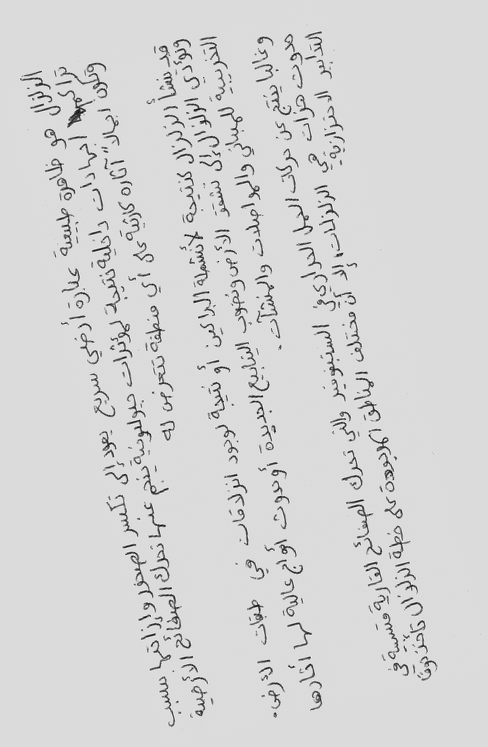 الزلزال هو ظاهرة طبيعية عبارة أرضي سريع يعود إلى تكسر الصخور وإزاحتها بسبب
تراكم اجهادات داخلية نتيجة لمؤثرات جيولوجية ينجم عنها تحرك الصفائح الأرضية
وتكون اجمالاً آثاره كارثية على أي منطقة تتعرض له
قد ينشأ الزلزال كنتيجة لأنشطة البراكين أو نتيجة لوجود انزلاقات في طبقات الأرض.
وتؤدي الزلزال إلى تشقق الأرض ونضوب الينابيع الجديدة أو حدوث أمواج عالية لها آثارها
التخريبية للمباني والمواصلات والمنشآت.
وغالبا ينتج عن حركات الحمل الحراري في والتي تحرك الصفائح القارية متسببة في
حدوث هزات هي الزلزلات، إلا أن مختلف المناطق الموجودة على خطة الزلازل تأخذ
التدابير الاحترازية